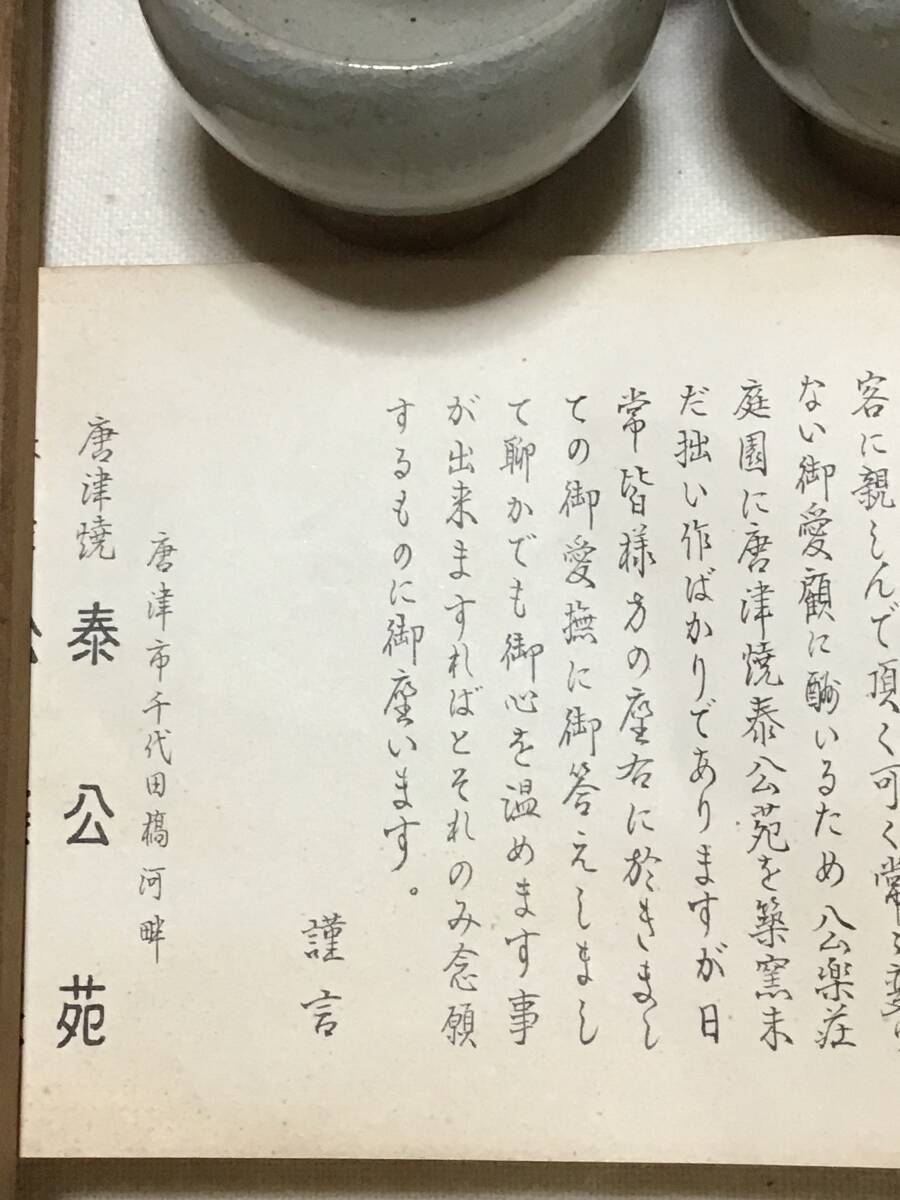 客に親しんで頂く可く常に変り
ない御愛顧に酬いるため八公楽荘
庭園に唐津焼泰公苑を築窯未
だ拙い作ばかりでありますが日
常皆様方の座右に於きまし
ての御愛撫に御答えしまし
て聊かでも御心を温めます事
が出来ますればとそれのみ念願
するものに御座います。
謹言
唐津市千代田橋河畔
唐津焼 泰公苑